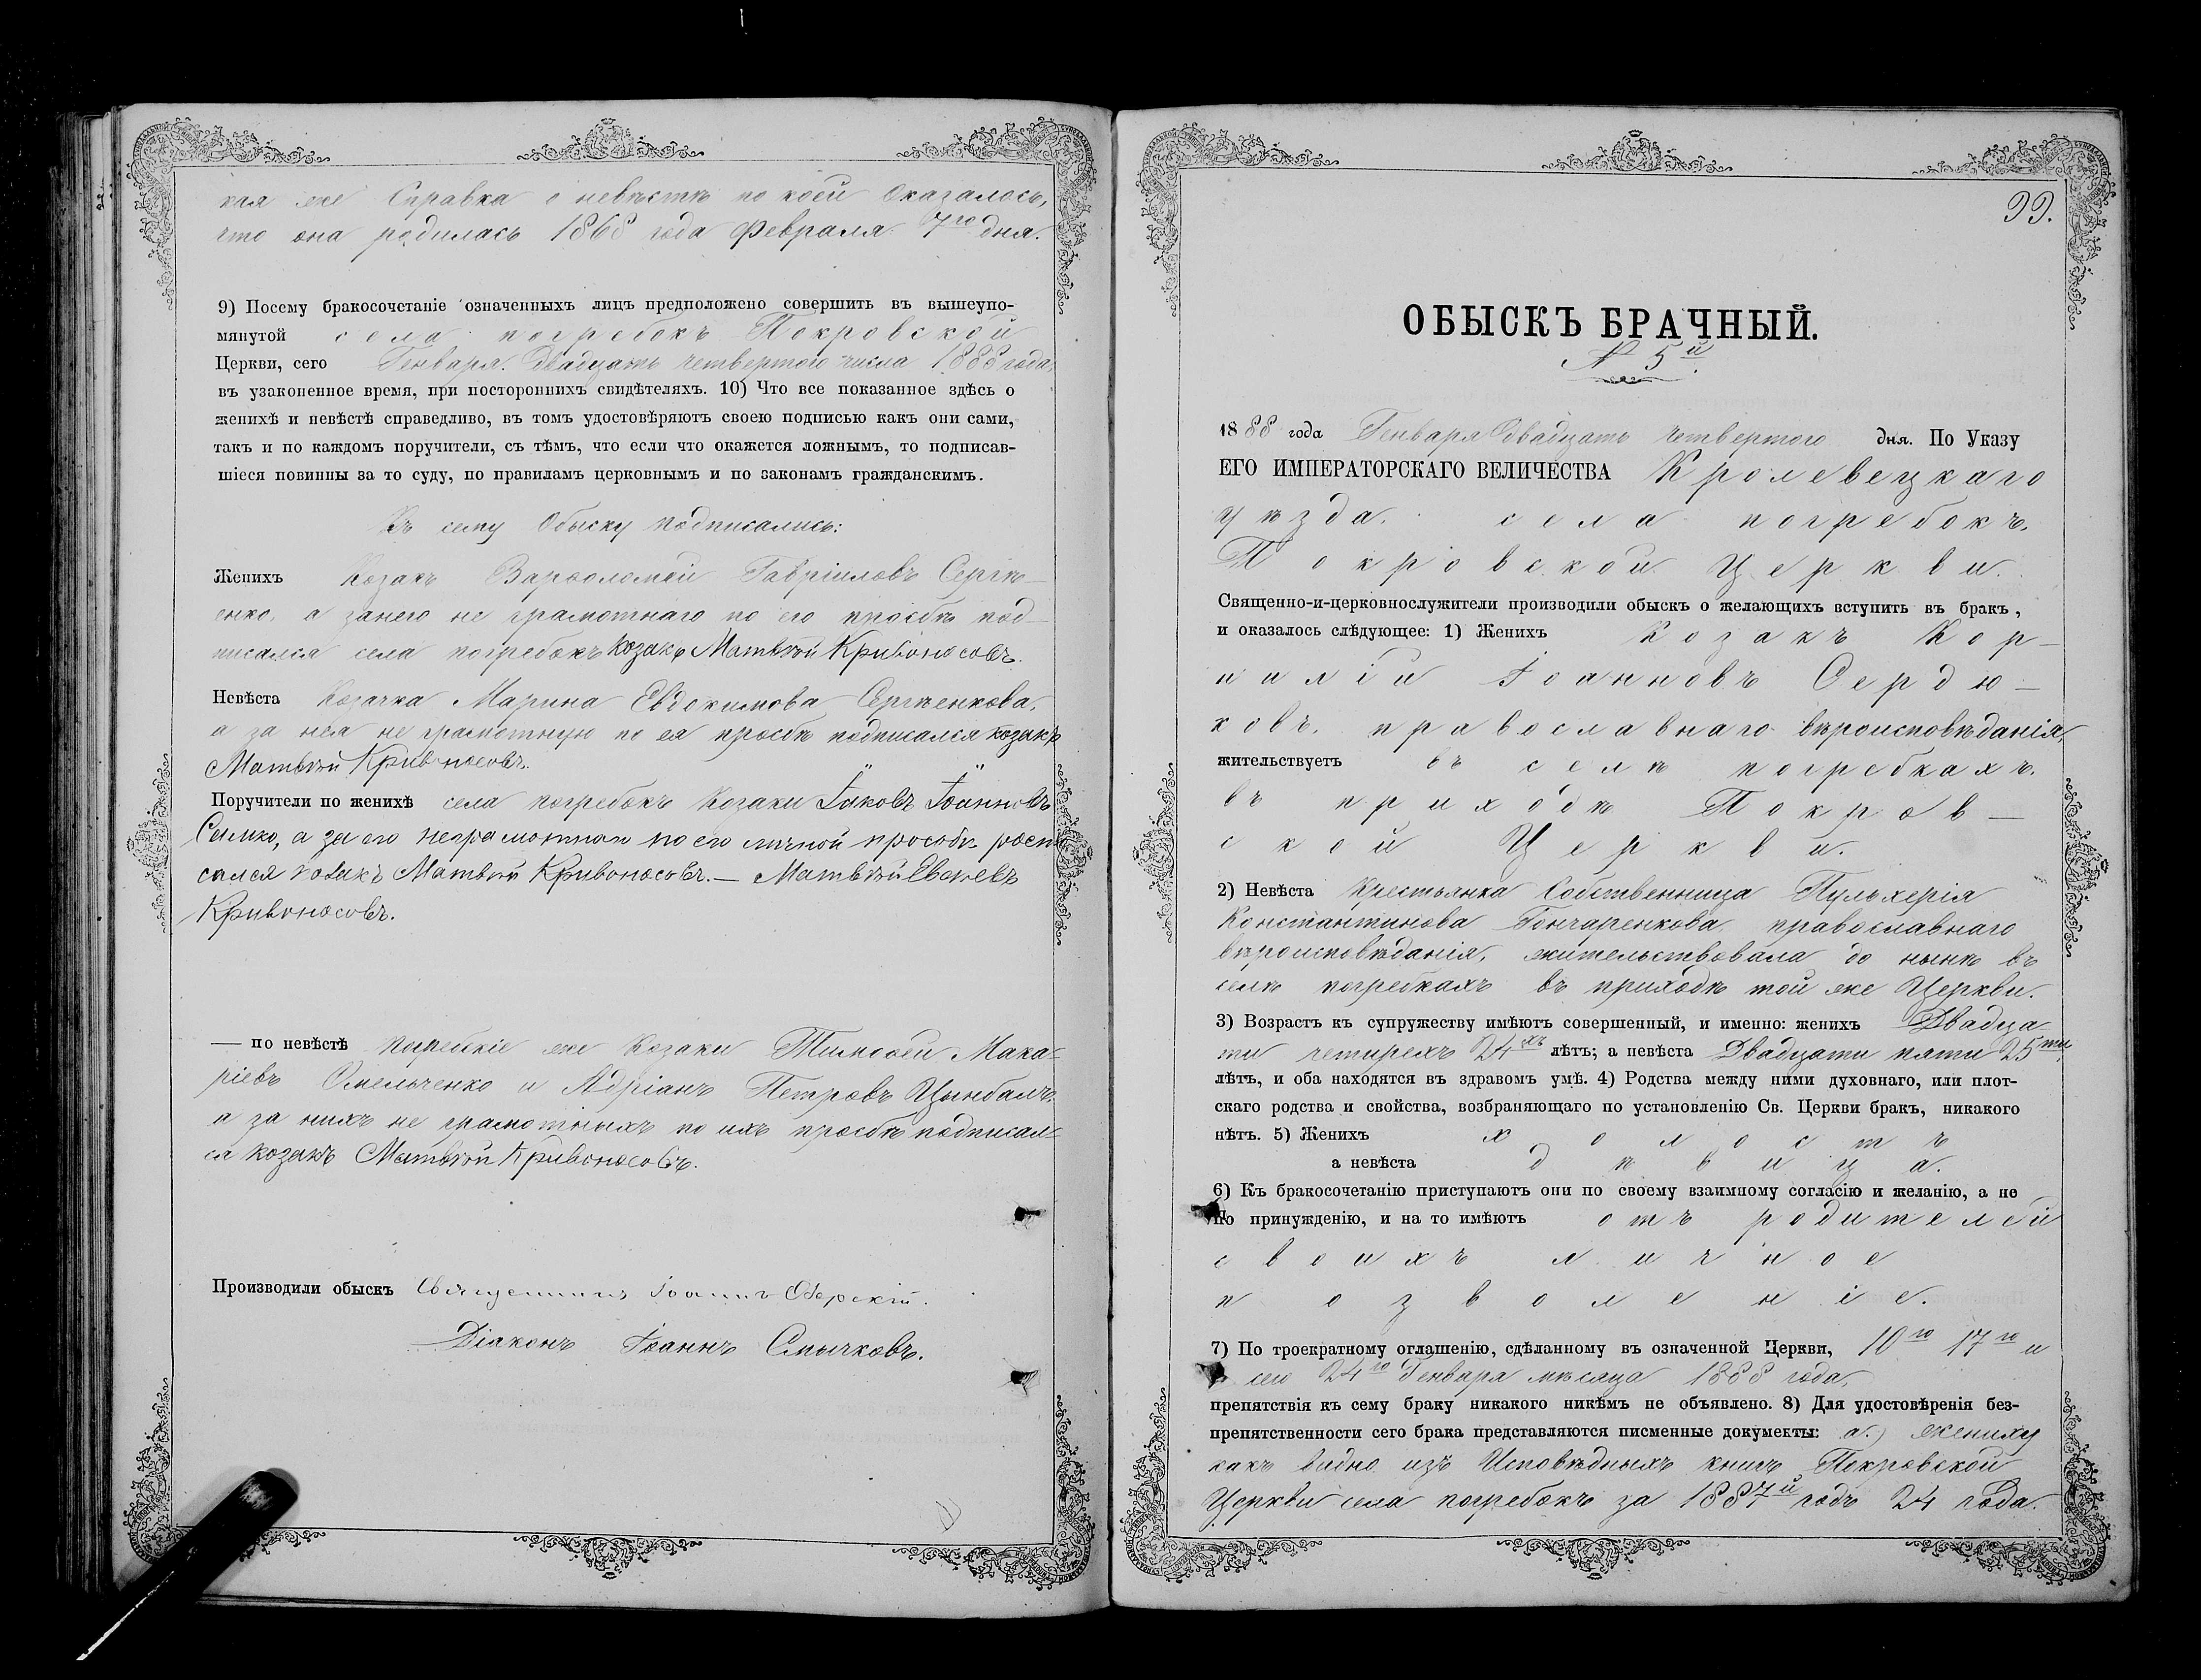 кая же Справка о невѣстѣ по коей Оказалось,
что она родилась 1868 года Февраля 7го дня.
9) Посему бракосочетаніе означенныхъ лицъ предположено совершить въ вышеупо-
мянутой села погребокъ Покровской
Церкви, сего Генваря. Двадцать четвертого числа 1888 года,
въ узаконенное время, при постороннихъ свидѣтеляхъ. 10) Что все показанное здѣсь о
женихѣ и невѣстѣ справедливо, въ томъ удостовѣряютъ своею подписью какъ они сами,
такъ и по каждомъ поручители, съ тѣмъ, что если что окажется ложнымъ, то подписав-
шіеся повинны за то суду, по правиламъ церковнымъ и по законамъ гражданскимъ.
Къ сему Обыску подписались:
Женихъ Козакъ Варѳоломей Гавріиловъ Сергѣ-
енко, а занего не грамотнаго по его прозбѣ под-
писался села погребокъ козакъ Матвѣй Кривоносовъ.
Невѣста Козачка Марина Евдокимова Сергѣенкова,
а за нея не грамотную по ея прозбѣ подписался козакъ
Матвѣй Кривоносовъ.
Поручители по женихѣ села погребокъ Козаки Іаковъ Іоанновъ
Сымко, а за его неграмотнаго по его личной прозбѣ роспи
сался козакъ Матвѣй Кривоносовъ. — Матвѣй
Кривоносовъ.
— по невѣстѣ погребскіе же Козаки Тимоѳей Мака-
ріевъ Омельченко и Адріанъ Петровъ Цынбалъ,
а за нихъ не грамотныхъ по ихъ прозбѣ подписал-
ся козакъ Матвѣй Кривоносовъ.
Производили обыскъ Священникъ Іоаннъ
Діаконъ Іоаннъ Смычковъ.
99.
ОБЫСКЪ БРАЧНЫЙ.
№ 5й.
1888 года Генваря Двадцать четвертого дня. По Указу
ЕГО ИМПЕРАТОРСКАГО ВЕЛИЧЕСТВА Кролевецкаго
уѣзда. села погребокъ.
Покровской Церкви.
Священно-и-церковнослужители производили обыскъ о желающихъ вступить въ бракъ,
и оказалось слѣдующее: 1) Женихъ Козакъ Кор-
нилій Іоанновъ Сердю-
ковъ, православнаго вѣроисповѣданія,
жительствуетъ въ селѣ погребкахъ.
въ приходѣ Покров-
ской Церкви.
2) Невѣста Крестьянка Собственница Пульхерія
Константинова Гончаренкова, православнаго
вѣроисповѣданія, жительствовала до нынѣ въ
селѣ погребкахъ въ приходѣ той же Церкви.
3) Возрастъ къ супружеству имѣютъ совершенный, и именно: женихъ Двадца-
ти четирехъ 24хъ лѣтъ; а невѣста Двадцати пяти 25ти
лѣтъ, и оба находятся въ здравомъ умѣ. 4) Родства между ними духовнаго, или плот-
скаго родства и свойства, возбраняющаго по установленію Св. Церкви бракъ, никакого
нѣтъ. 5) Женихъ холостъ
а невѣста дѣвица.
6) Къ бракосочетанію приступаютъ они по своему взаимному согласію и желанію, а не
по принужденію, и на то имѣютъ отъ родителей
своихъ личное
позволеніе.
7) По троекратному оглашенію, сдѣланному въ означенной Церкви, 10го 17го и
сего 24го Генваря мѣсяца 1888 года,
препятствія къ сему браку никакого никѣмъ не объявлено. 8) Для удостовѣренія без-
препятственности сего брака представляются писменные документы: а.) жениху
какъ видно изъ Исповѣдныхъ книгъ Покровской
Церкви села погребокъ за 1887й годъ 24 года.